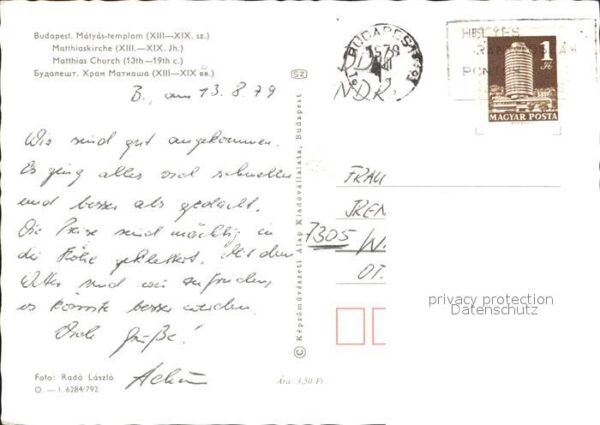 Budapest. Mátyás-templom (XIII—XIX. sz.)
Matthiaskirche (XIII.—XIX. Jh.)
Matthias Church (13th—19th c.)
Будапешт. Храм Матиаша (XIII—XIX вв.)
B., am 13.8.79
Wir sind gut angekommen.
Es ging alles viel schneller
und besser als gedacht.
Die Preise sind mächtig in
die Höhe geklettert. Mit dem
Wetter sind wir zufrieden,
es könnte besser werden.
Viele Grüße!
Achim
Foto: Radó László
O. — I. 6284/792
Ára: 3,50 Ft
SZ
© Képzőművészeti Alap Kiadóvállalata, Budapest
BUDAPEST
DDR
NDR
HELYES
PON
1 Ft
MAGYAR POSTA
FRAU
IREN
7305 W
OT
privacy protection
Datenschutz